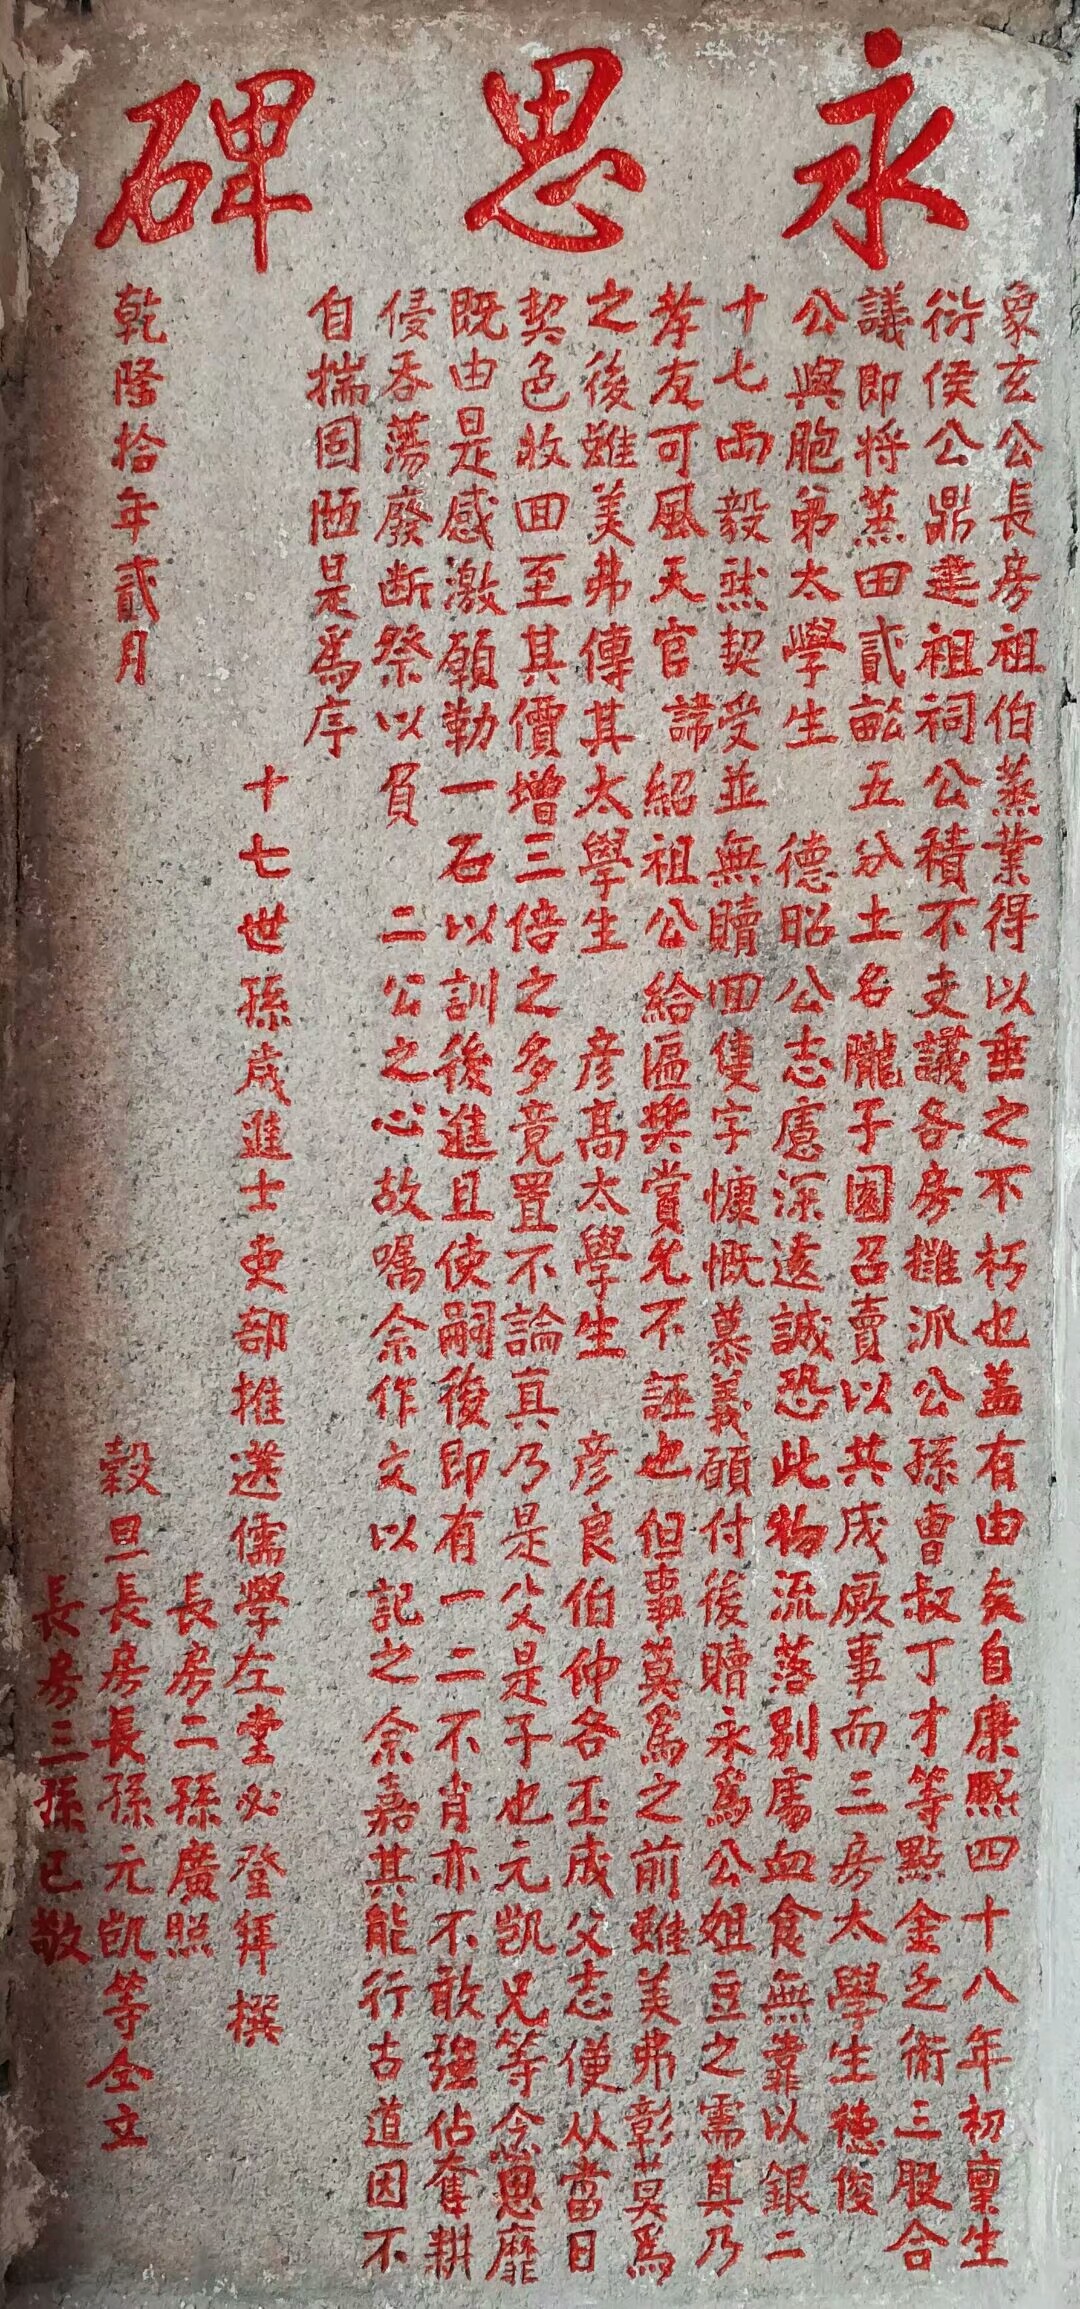 永思碑
象玄公長房祖伯蒸業得以垂之不朽也盖有由矣自康熙四十八年初稟生
衍侯公鼎建祖祠公積不支議各房攤派公孫曹叔丁才等點金乏術三股合
議即将蒸田貳畝五分土名隴子園召賣以共成厥事而三房太學生德俊
公與胞弟太學生德昭公志慮深遠誠恐此物流落别處血食無靠以銀二
十七両毅然契受並無贖囬隻字慷慨慕義願付後贖永為公俎豆之需真乃
孝友可風天官諱紹祖公給匾奬賞允不誣也但事莫為之前雖美弗彰莫為
之後雖美弗傳其太學生彦高太學生彦良伯仲各丕成父志僅从當日
契色收囬至其價增三倍之多竟置不論真乃是父是子也元凱兄等念恩靡
既由是感激願勒一石以訓後進且使嗣後即有一二不肖亦不敢強佔奪耕
侵吞蕩廢断祭以負二公之心故嘱余作文以記之余嘉其能行古道因不
自揣固陋是為序
十七世孫歲進士吏部推送儒學左堂必登拜撰
長房二孫廣照
乾隆拾年貳月穀旦長房長孫元凱等仝立
長房三孫已敬